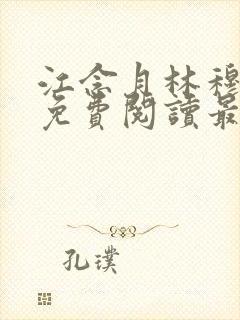 江念月林穆
免費閱讀最
孔璞